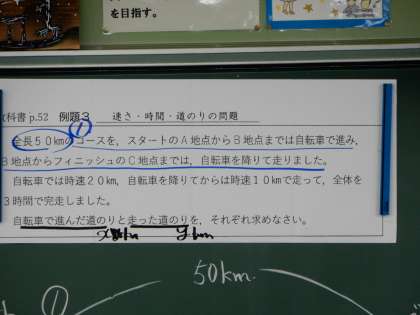 を目指す。
教科書 p.52 例題3 速さ・時間・道のりの問題
①
全長50kmのコースを、スタートのA地点からB地点までは自転車で進み、
B地点からフィニッシュのC地点までは、自転車を降りて走りました。
自転車では時速20km、自転車を降りてからは時速10kmで走って、全体を
3時間で完走しました。
自転車で進んだ道のりと走った道のりを、それぞれ求めなさい。
xkm ykm
50km.
①